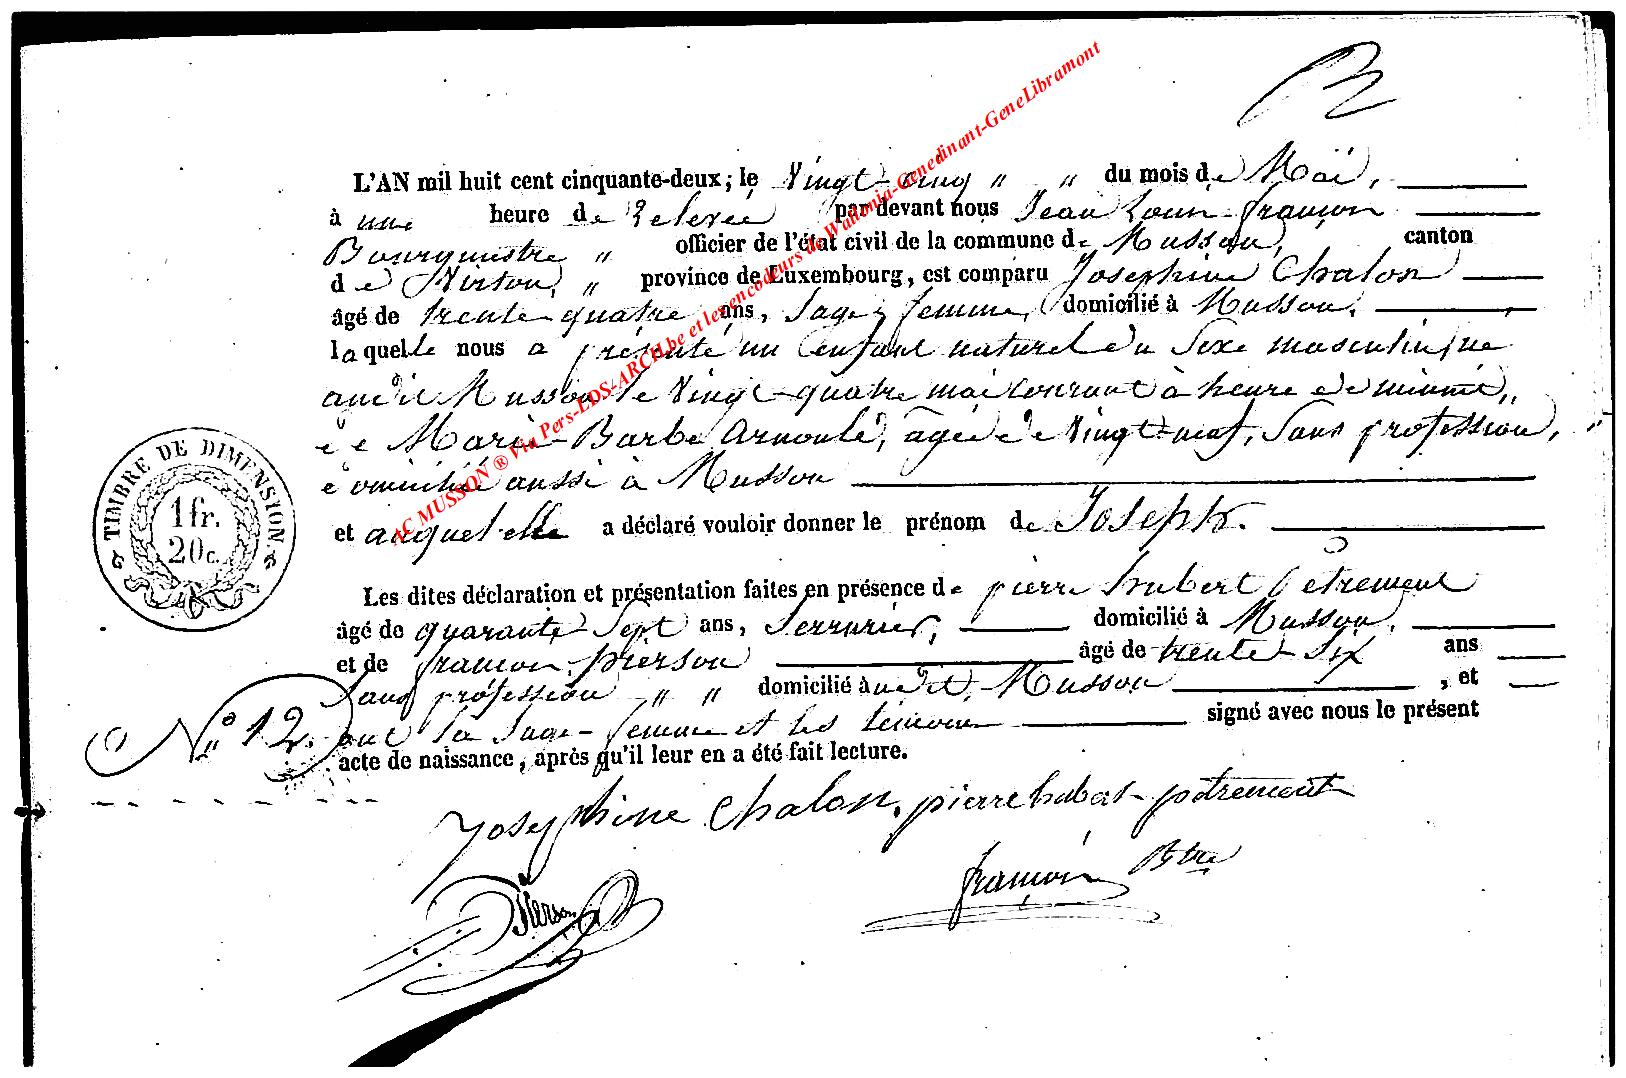 L'AN mil huit cent cinquante-deux ; le Vingt-cinq " " du mois de Maï,
à une heure de relevée par devant nous Jean Louis françois
Bourgmestre " officier de l'état civil de la commune de Musson, canton
de Virton, " province de Luxembourg, est comparu Joséphine Chalon
âgé de trente-quatre ans, Sage-femme, domicilié à Musson,
laquelle nous a présenté un Enfant naturel du Sexe masculin, né
audit Musson le Vingt-quatre mai courant à heure de minuit,,
de Marie-Barbe Arnould, âgée de Vingt-neuf, Sans profession,
domiciliée aussi à Musson
et auquel elle a déclaré vouloir donner le prénom de Joseph.
Les dites déclaration et présentation faites en présence de pierre hubert pétrement
âgé de quarante-Sept ans, Serrurier, domicilié à Musson,
et de françois pierson âgé de trente-six ans
Sans profession " " domicilié audit Musson, et
ont la Sage-femme et les témoins signé avec nous le présent
acte de naissance, après qu'il leur en a été fait lecture.
N° 12.
TIMBRE DE DIMENSION
1 fr.
20 c.
Josephine Chalon. pierre hubert pétrement
Pierson
françois Btre
AC MUSSON ® Via Pers-LDS-ARCH.be et les encodeurs de Wallonia-Genedinant-GeneLibramont